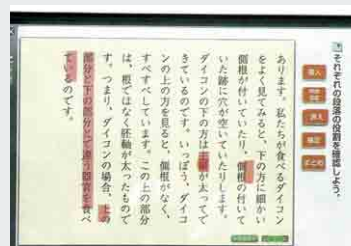 それぞれの段落の役割を確認しよう。
導入
まとめ
あります。私たちが食べるダイコン
をよく見てみると、下の方に細かい
側根が付いていたり、側根の付いて
いた跡に穴が空いていたりします。
ダイコンの下の方は主根が太ってで
きているのです。いっぽう、ダイコ
ンの上の方を見ると、側根がなく、
すべすべしています。この上の部分
は、根ではなく胚軸が太ったもので
す。つまり、ダイコンの場合、上の
部分と下の部分とで違う器官を食べ
ているのです。